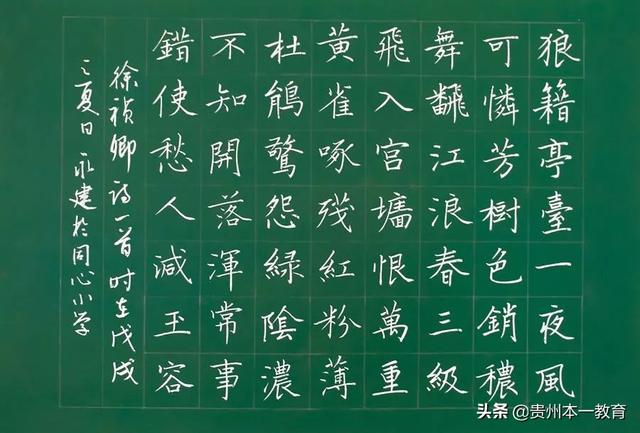 狼籍亭臺一夜風
可憐芳樹色銷穠
舞飜江浪春三級
飛入宮墻恨萬重
黃雀啄殘紅粉薄
杜鵑驚怨綠陰濃
不知開落渾常事
錯使愁人減玉容
徐祯卿诗一首时在戊戌
之夏日永建於同心小学
头条@贵州本一教育